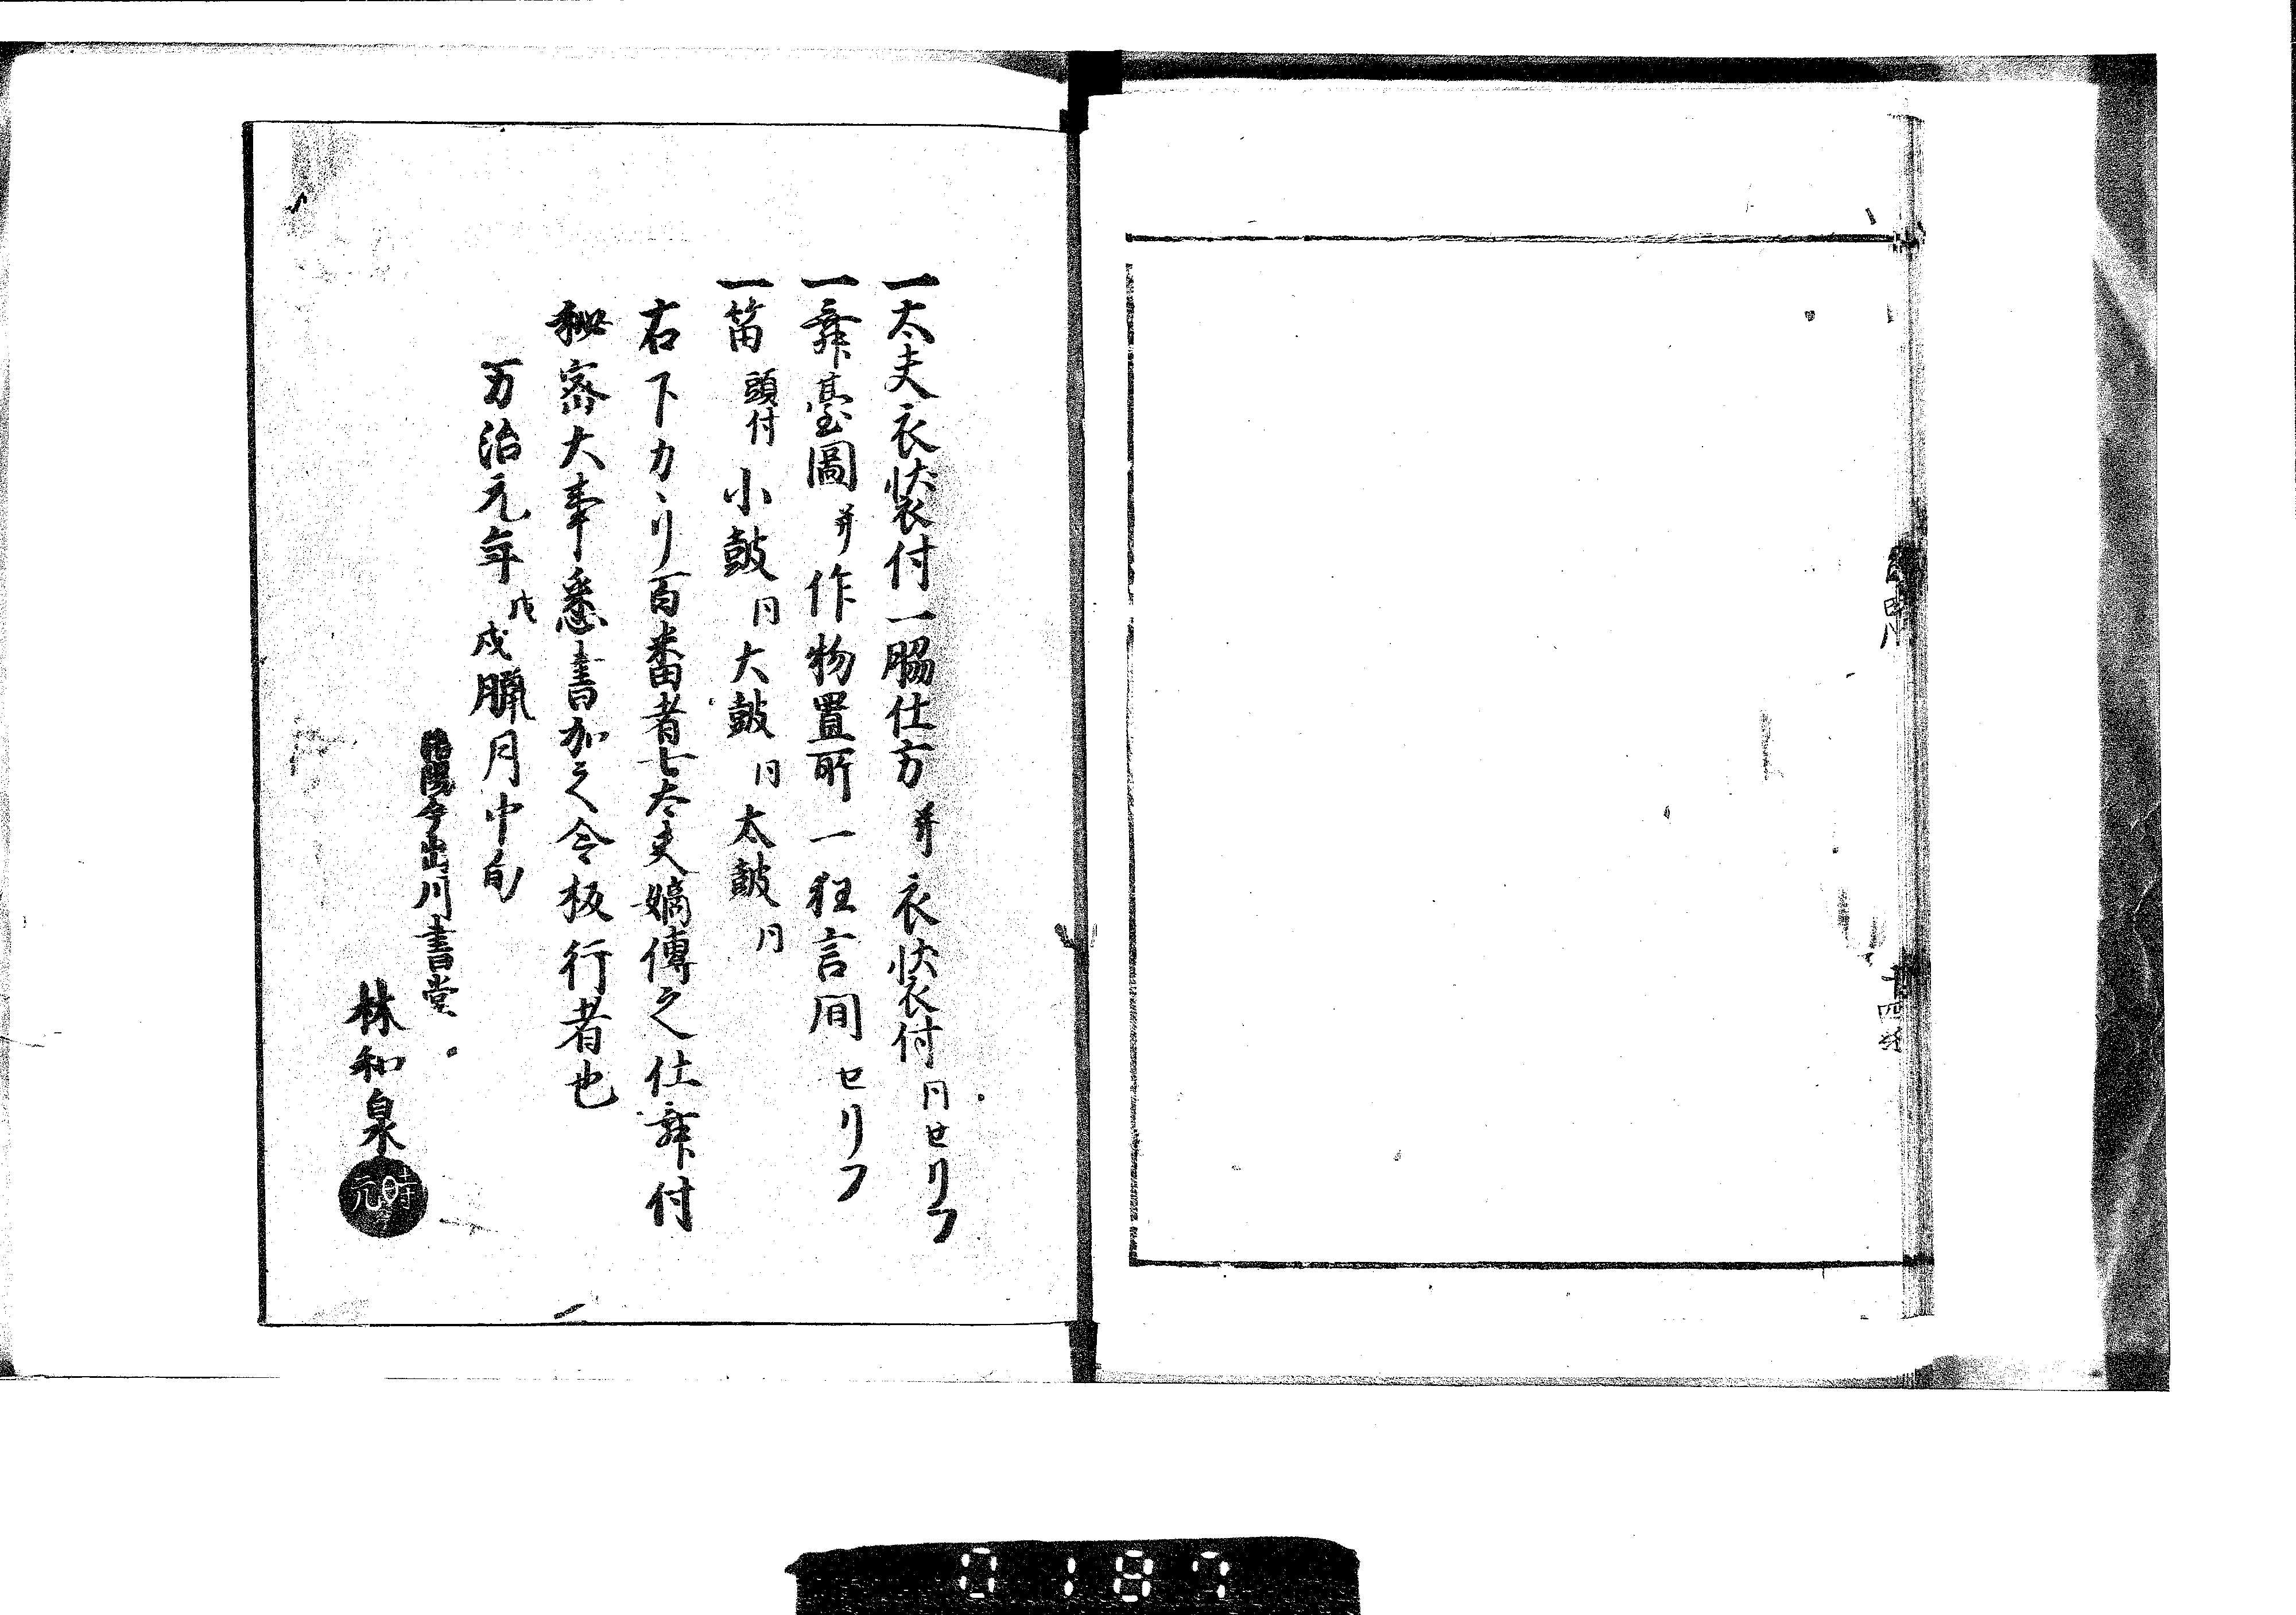 一太夫衣裝付一脇仕方并衣裝付同セリフ
一舞臺圖并作物置所一狂言間セリフ
一笛頭付小鼓同大鼓同太鼓同
右下カヽリ百番者七太夫嫡傳之仕舞付
秘密大事悉書加之令板行者也
万治元年戊戌臘月中旬
洛陽今出川書堂
林和泉
時元
0187